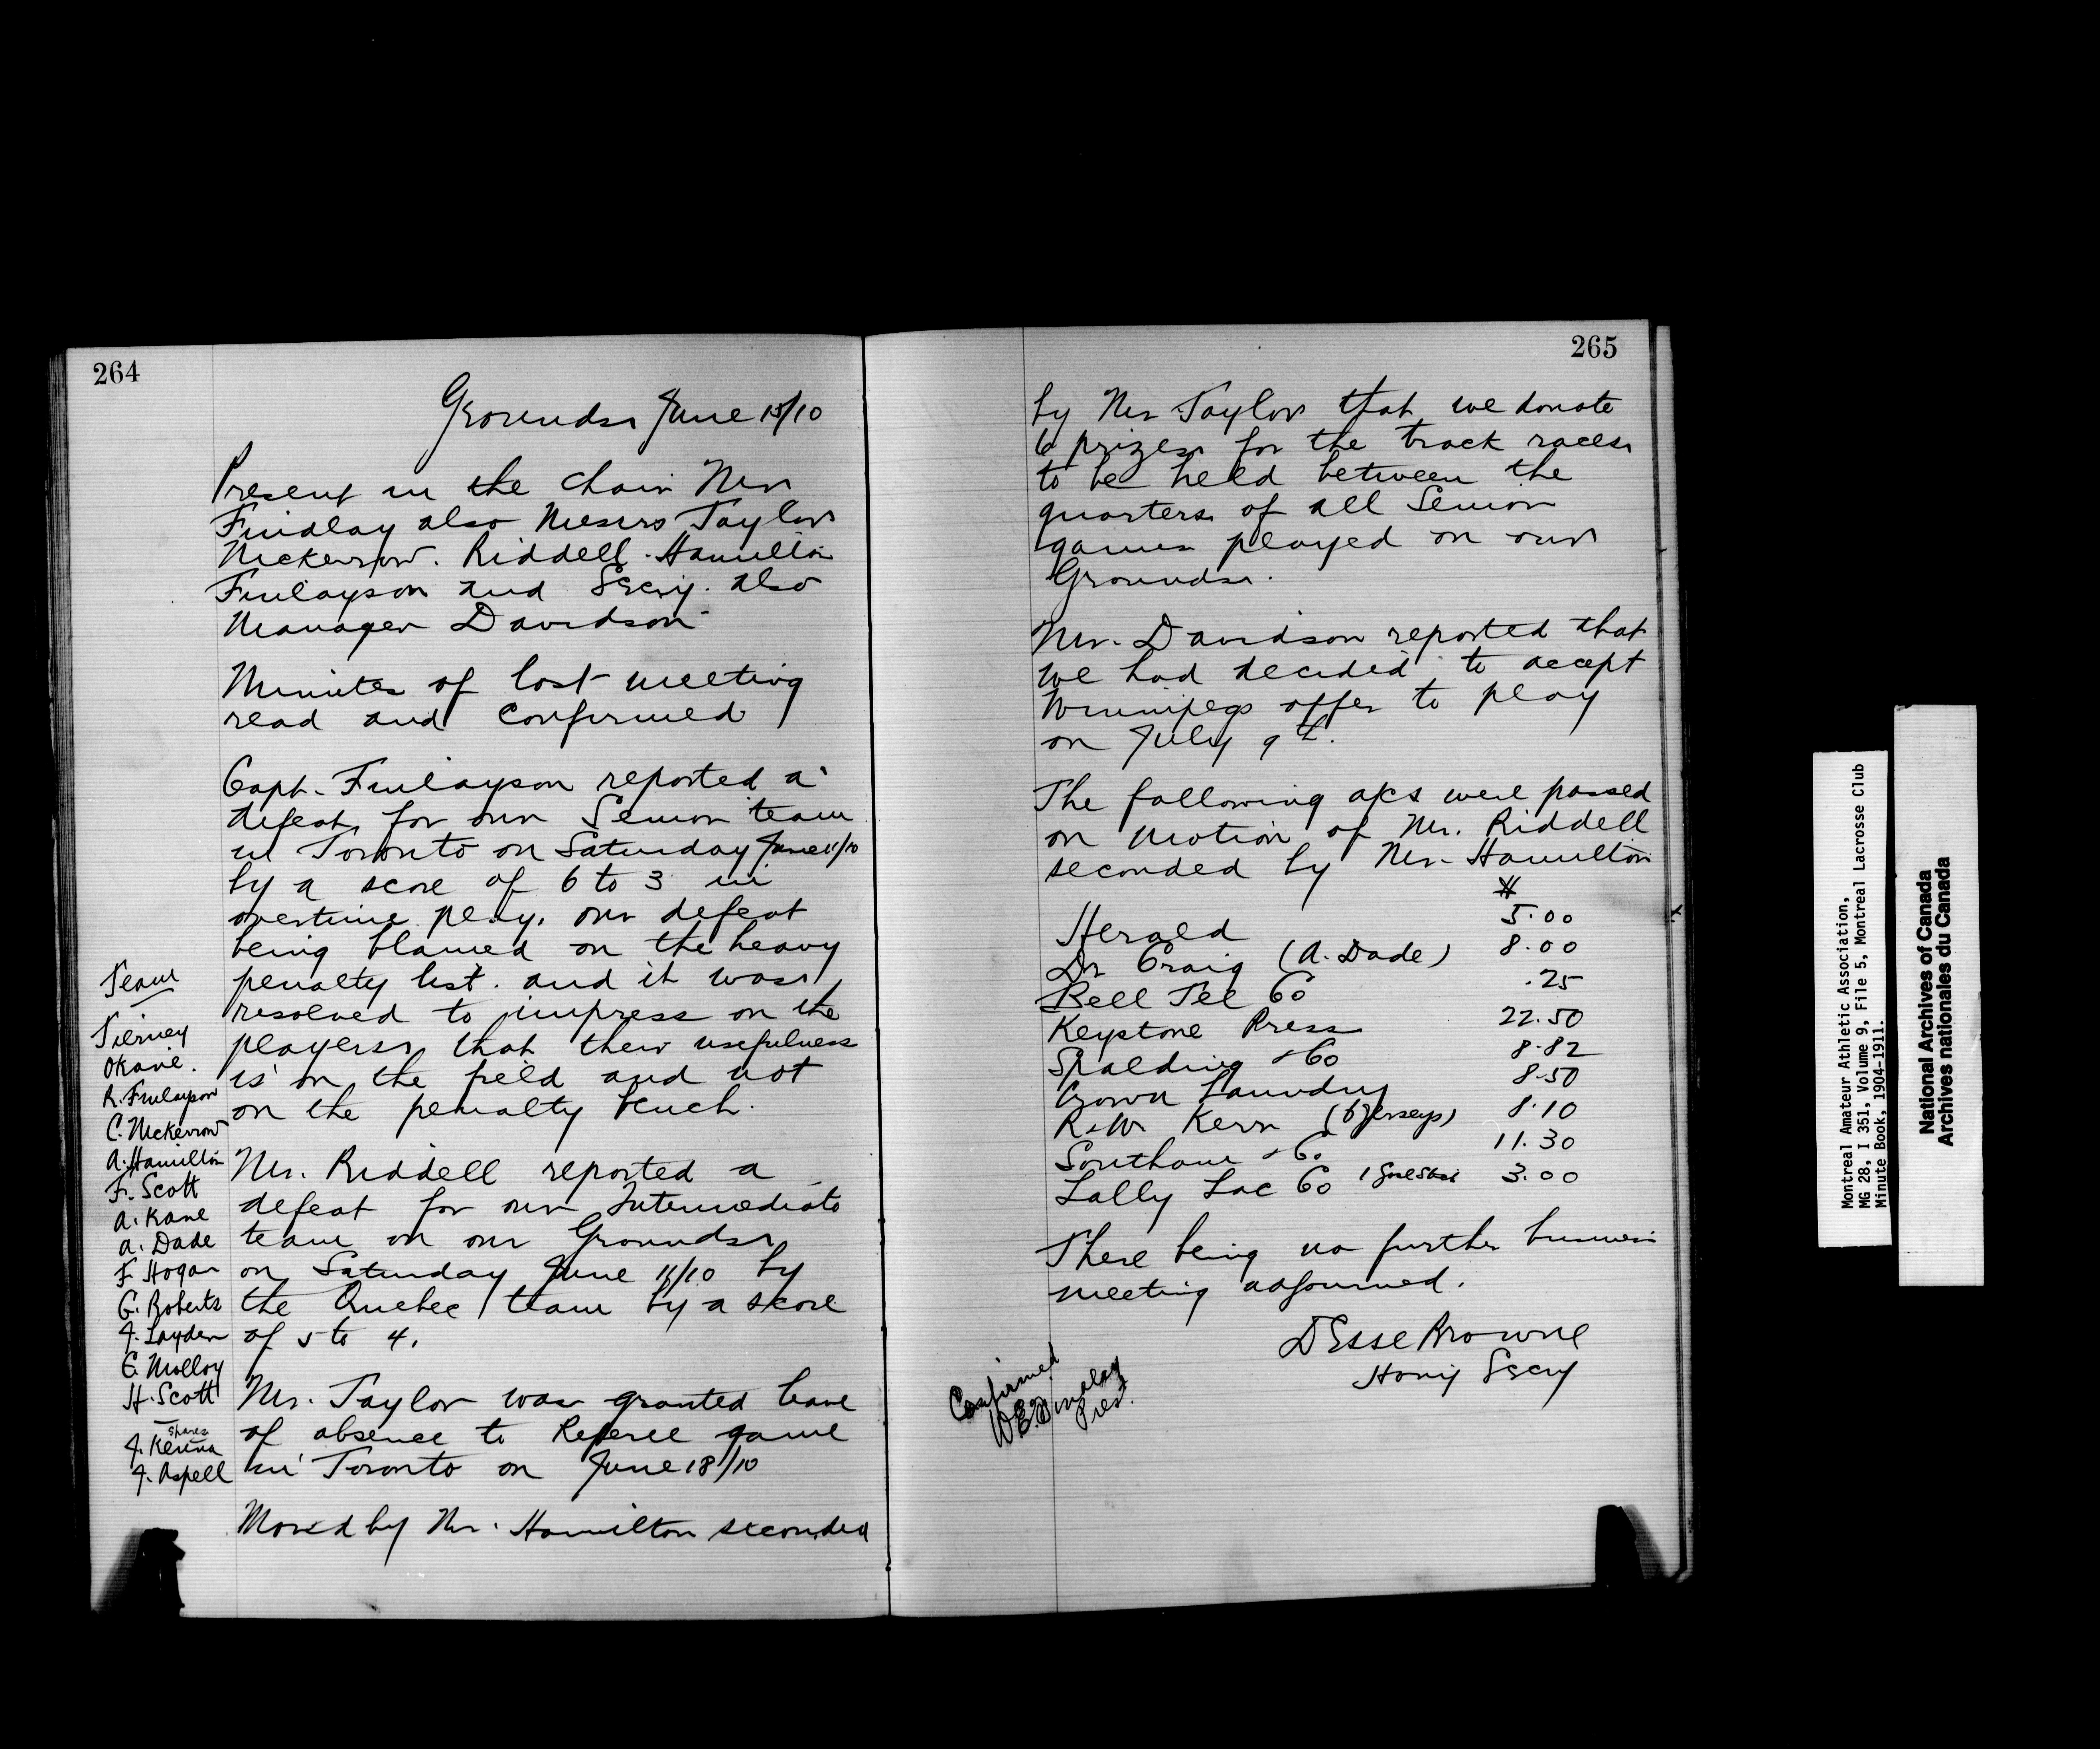 264
Grounds June 15/10
Present in the chair Mr
Findlay also Messrs Taylor
McKerrow. Riddell. Hamilton
Finlayson and Secy. also
Manager Davidson
Minutes of last meeting
read and confirmed
Capt. Finlayson reported a
defeat for our Senior team
in Toronto on Saturday June 11/10
by a score of 6 to 3 in
overtime play. our defeat
being blamed on the heavy
penalty list. and it was
resolved to impress on the
players that their usefulness
is on the field and not
on the penalty bench.
Team
Tierney
OKane.
R. Finlayson
C. McKerrow
A. Hamilton
F. Scott
A. Kane
A. Dade
F Hogan
G. Roberts
J. Layden
E. Molloy
H. Scott
Spares
J. Kenna
J. Aspell
Mr. Riddell reported a
defeat for our Intermediate
team on our Grounds
on Saturday June 11/10 by
the Quebec team by a score
of 5 to 4.
Mr. Taylor was granted leave
of absence to Referee game
in Toronto on June 18/10
Moved by Mr. Hamilton seconded
265
by Mr Taylor that we donate
6 prizes for the track races
to be held between the
quarters of all Senior
games played on our
Grounds.
Mr. Davidson reported that
we had decided to accept
Winnipegs offer to play
on July 9th.
The following a/cs were passed
on motion of Mr. Riddell
seconded by Mr. Hamilton
$
Herald 5.00
Dr Craig (A. Dade) 8.00
Bell Tel Co .25
Keystone Press 22.50
Spalding & Co 8.82
Crown Laundry 8.50
R. W. Kerr (6 Jerseys) 8.10
Southam & Co 11.30
Lally Lac Co 1 Goal Stick 3.00
There being no further business
meeting adjourned.
D Esse Browne
Hony Secy
Confirmed
Pres.
Montreal Amateur Athletic Association,
MG 28, I 351, Volume 9, File 5, Montreal Lacrosse Club
Minute Book, 1904-1911.
National Archives of Canada
Archives nationales du Canada